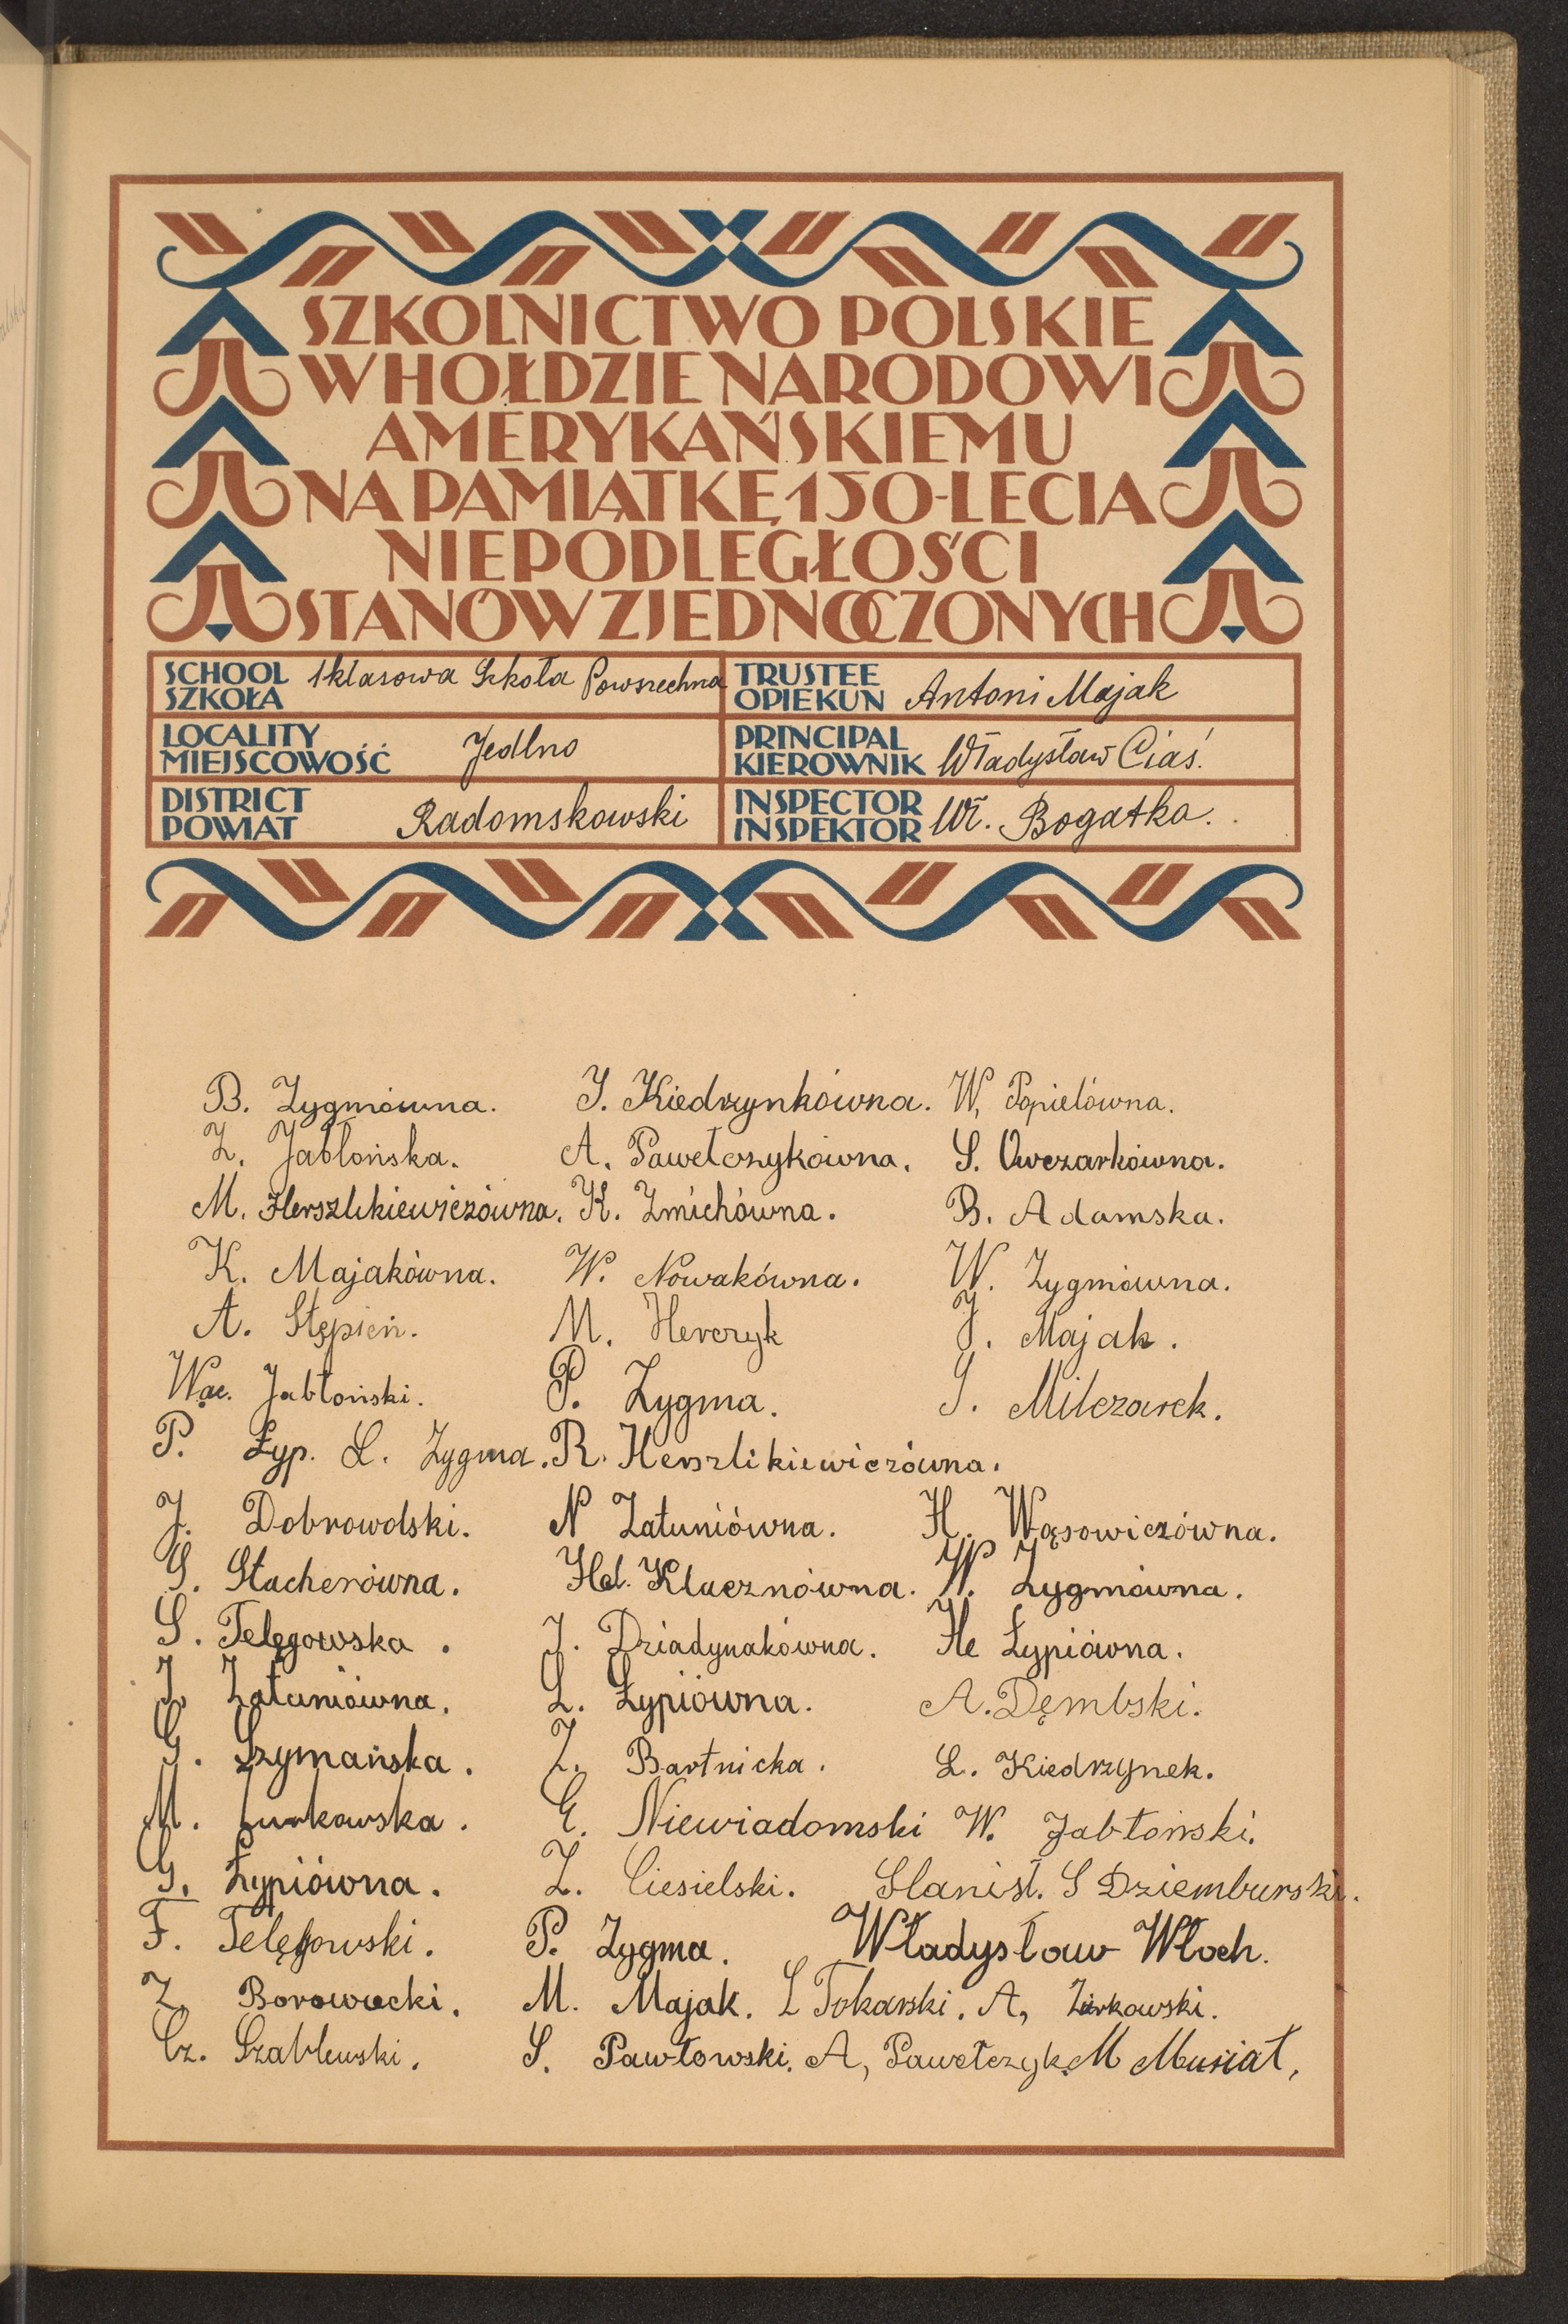 SZKOLNICTWO POLSKIE
W HOŁDZIE NARODOWI
AMERYKAŃSKIEMU
NA PAMIĄTKĘ 150-LECIA
NIEPODLEGŁOŚCI
STANÓW ZJEDNOCZONYCH
SCHOOL SZKOŁA 1klasowa Szkoła Powszechna
TRUSTEE OPIEKUN Antoni Majak
LOCALITY MIEJSCOWOŚĆ Jedlno
PRINCIPAL KIEROWNIK Władysław Ciaś.
DISTRICT POWIAT Radomskowski
INSPECTOR INSPEKTOR Wł. Bogatko.
B. Zygmówna. J. Kiedrzynkówna. W, Popielówna.
Z. Jabłońska. A. Pawełczykówna. S. Owczarkówna.
M. Herszlikiewiczówna. K. Zmichówna. B. Adamska.
K. Majakówna. W. Nowakówna. W. Zygmówna.
A. Stępień. M. Herczyk J. Majak.
Wac. Jabłoński. P. Zygma. S. Milczarek.
P. Łyp. L. Zygma. R. Herszlikiewiczówna.
J. Dobrowolski. N Załuniówna. H. Wąsowiczówna.
S. Stacherówna. Hel. Klucznówna. W. Zygmówna.
S. Telęgowska. J. Dziadynakówna. He Łypiówna.
J. Załuniówna. L. Łypiówna. A. Dęmbski.
G. Szymańska. Z. Bartnicka. L. Kiedrzynek.
M. Żurkowska. E. Niewiadomski W. Jabłoński.
G. Łypiówna. Z. Ciesielski. Stanisł. S Dziemburski.
F. Telęgowski. P. Zygma. Władysław Włoch.
Z Borowiecki. M. Majak. L Tokarski. A, Żurkowski.
Cz. Szablewski. S. Pawłowski. A, Pawełczyk. M Musiał,